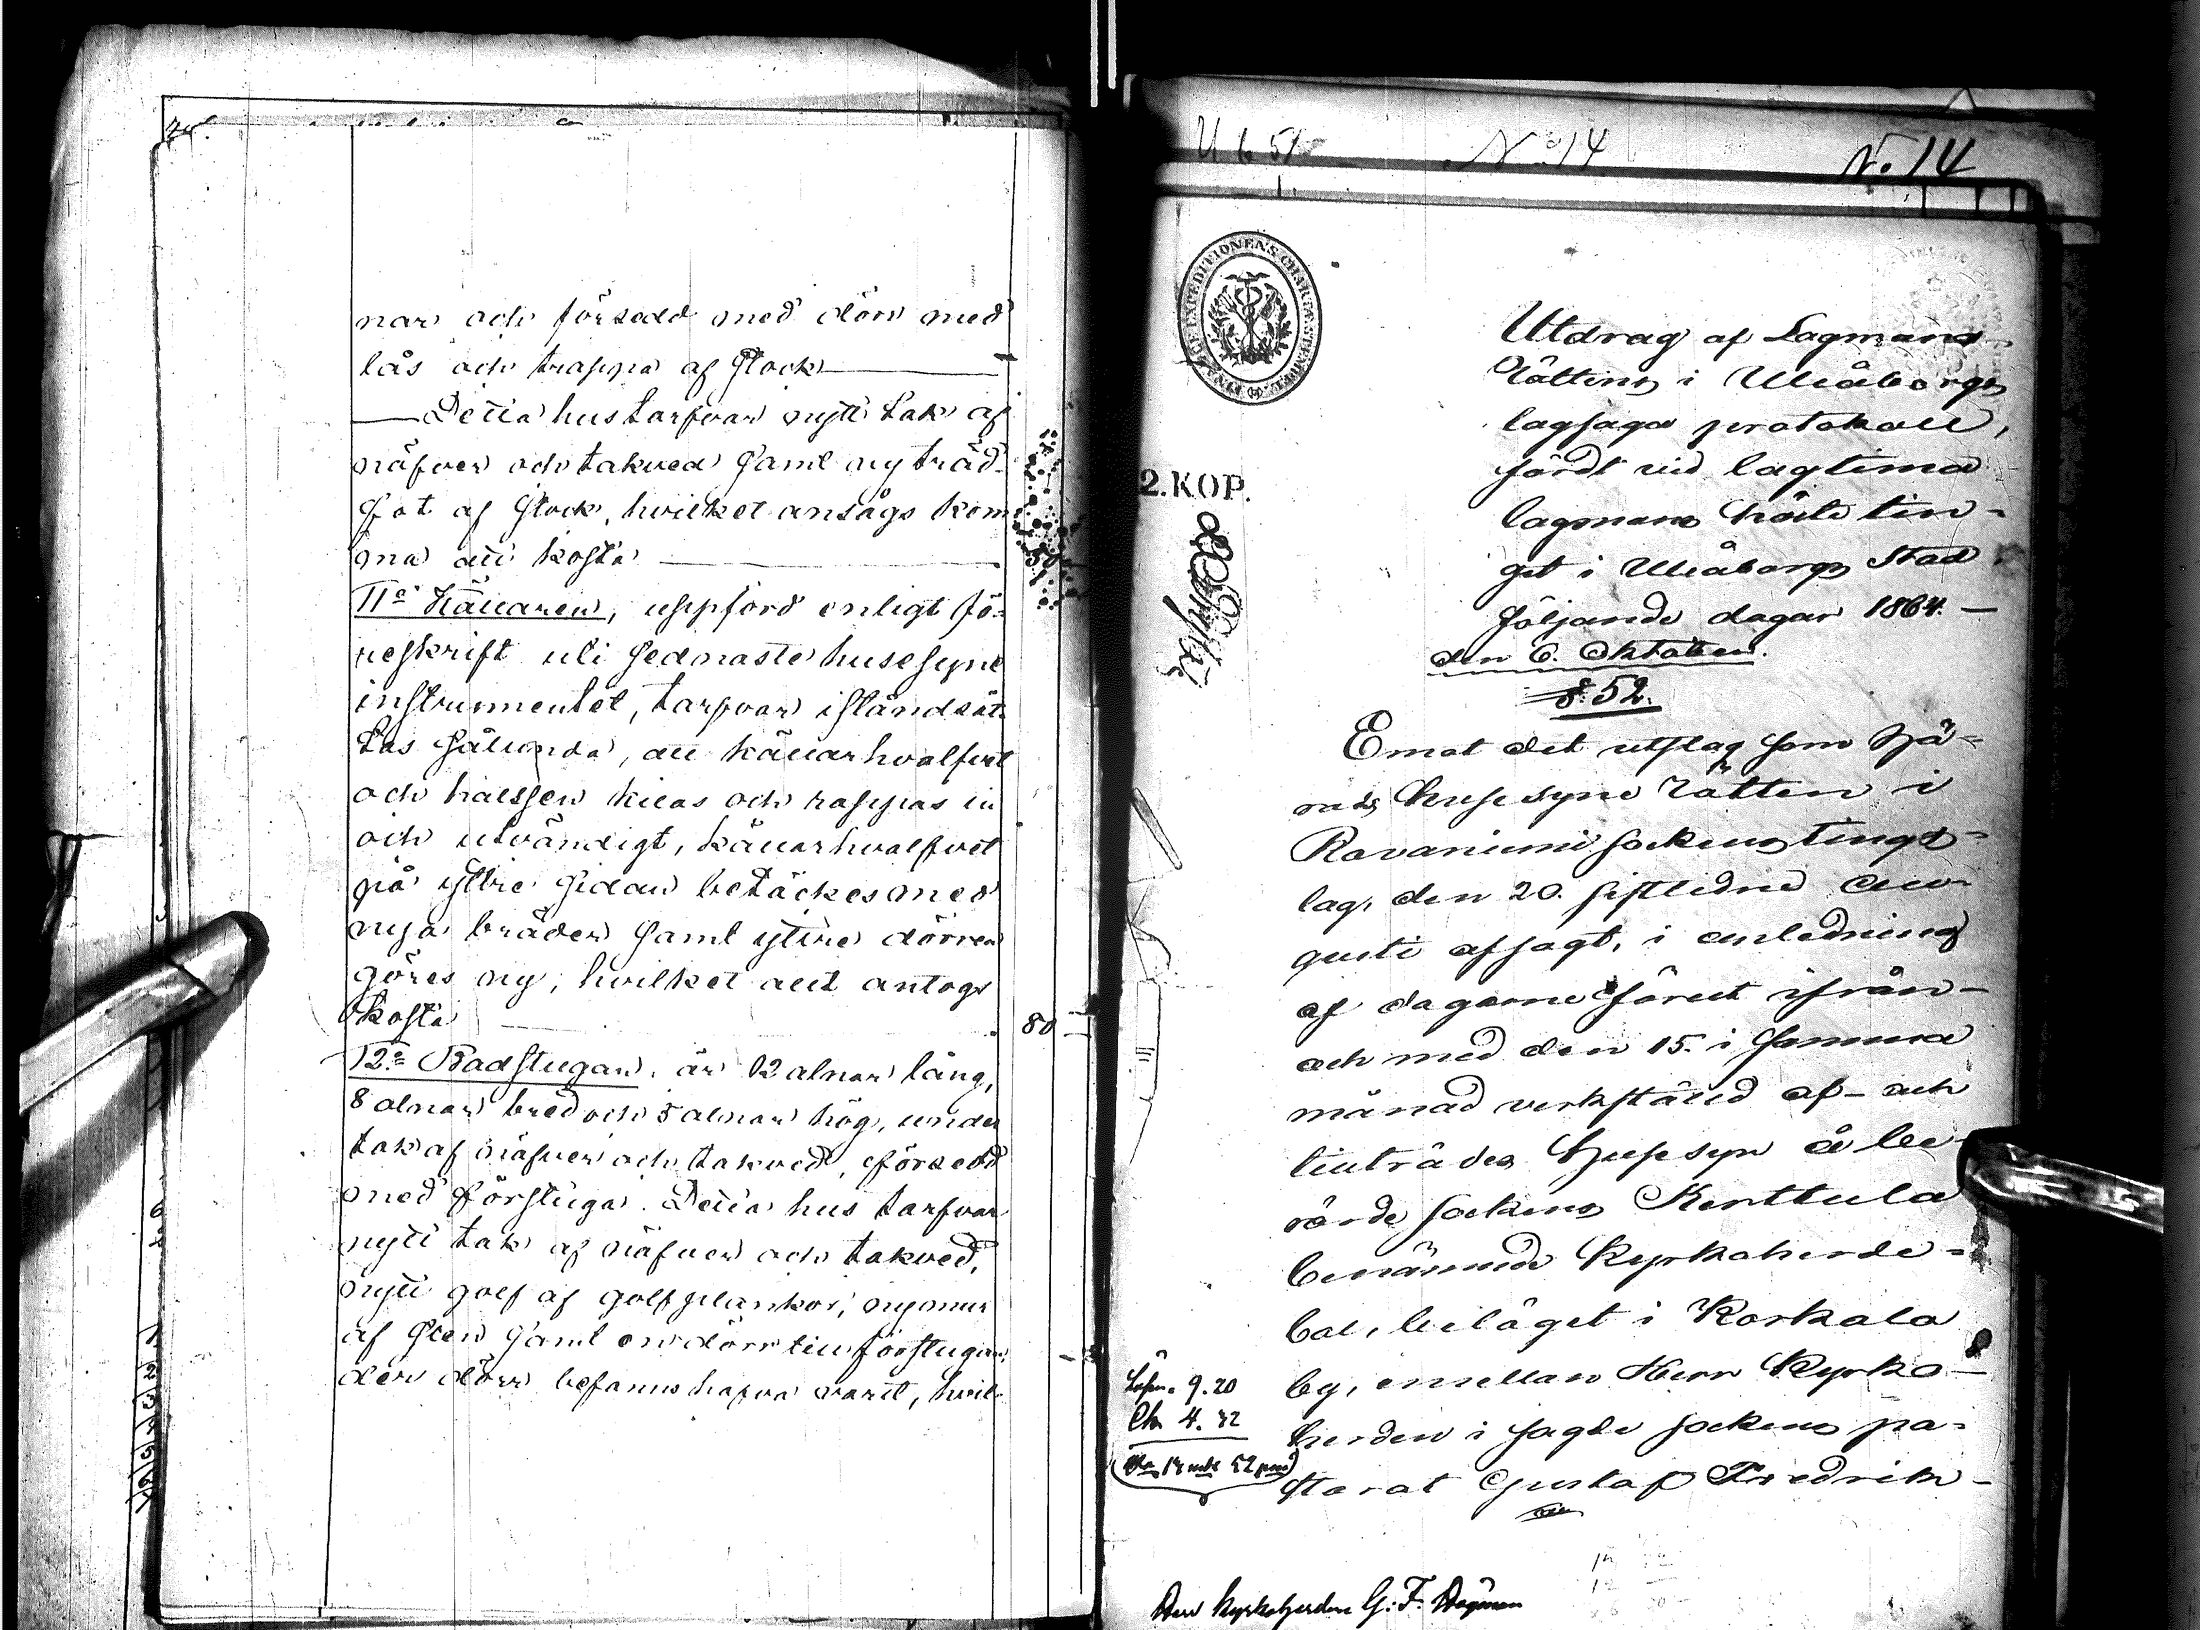 nar och försedd med dörr med
lås och trappa af stock
Detta hus tarfvar nytt tak af
näfver och takved samt ny träd-
fot af stock, hvilket ansågs kom-
ma att kosta 50
11º Källaren, uppförd enligt fö-
reskrift uti sednaste husesyns
instrumentet, tarfvar iståndsät-
tas sålunda, att källarhvalfvet
och halssen kilas och rappas in
och utvändigt, källarhvalfvet
på yttre sidan betäckes med
nya bräder samt yttre dörren
göres ny, hvilket allt antogs
kosta 80
12º Badstugan, är 12 alnar lång,
8 alnar bred och 5 alnar hög, under
tak af näfver och takved, försedd
med förstuga. Detta hus tarfvar
nytt tak af näfver och takved,
nytt golf af golfplankor, ny mur
af sten samt en dörr till förstugan,
der dörr befanns hafva varit, hvil-
U b 51
No 14
N. 14
2. KOP.
Utdrag af Lagmans
Rättens i Uleåborgs
lagsaga protokoll,
fördt vid lagtima
lagmans höste tin-
get i Uleåborgs Stad
följande dagar 1864.
den 6. Oktober.
§. 52.
Emot det utslag som Hä-
rads husesyns Rätten i
Rovaniemi sockens tings-
lag, den 20. sistledne Au-
gusti afsagt, i anledning
af dagarne förut ifrån
och med den 15. i samma
månad verkställd af- och
tillträdes Husesyn å be-
rörde sockens Kenttula
benämnde Kyrkoherde-
bol, beläget i Korkala
by, emellan Herr Kyrko-
herden i sagde sockens pa-
storat Gustaf Fredrik
Lösen. 9. 20
Ch. 4. 32
Herr Kyrkoherden G. F.